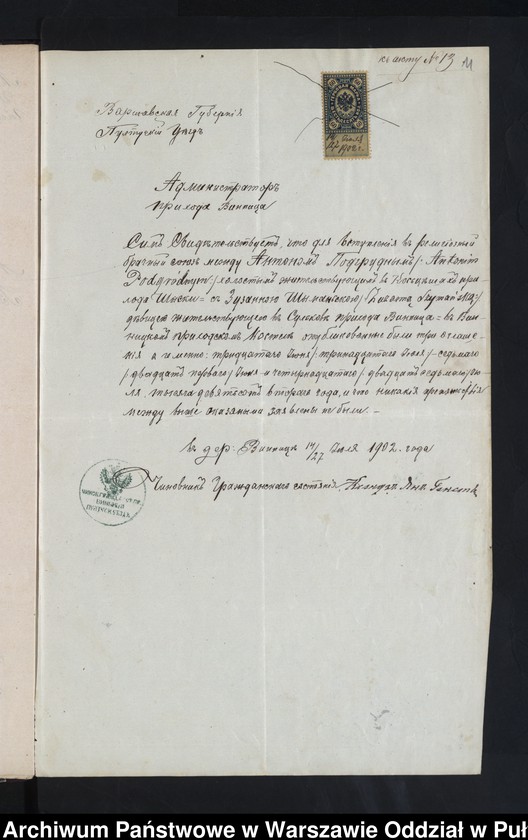 къ акту № 13
Варшавская Губернія
Пултускій Уѣздъ
14/27 Іюля
1902 г.
Администраторъ
прихода Винница
Симъ Свидѣтельствуетъ, что для вступленія въ религіозный
брачный союзъ между Антономъ Подгруднымъ / Antonim
холостымъ жительствующимъ въ при-
хода = съ Зузанною
дѣвицею жительствующею въ прихода Винница = въ Вин-
ницкомъ приходскомъ Костелѣ опубликованные были три оглаше-
нія а именно: тридцатаго Іюня / тринадцатаго Іюля / седьмаго
/ двадцать перваго / Іюля и четырнадцатаго / двадцать седьмаго / Ію-
ля тысяча девятьсотъ втораго года, и что никакія препятствія
между выше сказаными заявлены не были. –
въ дер: Винница 14/27 Іюля 1902. года
Чиновникъ Гражданскаго состоянія, Ксендзъ Янъ
Archiwum Państwowe w Warszawie Oddział w Puł